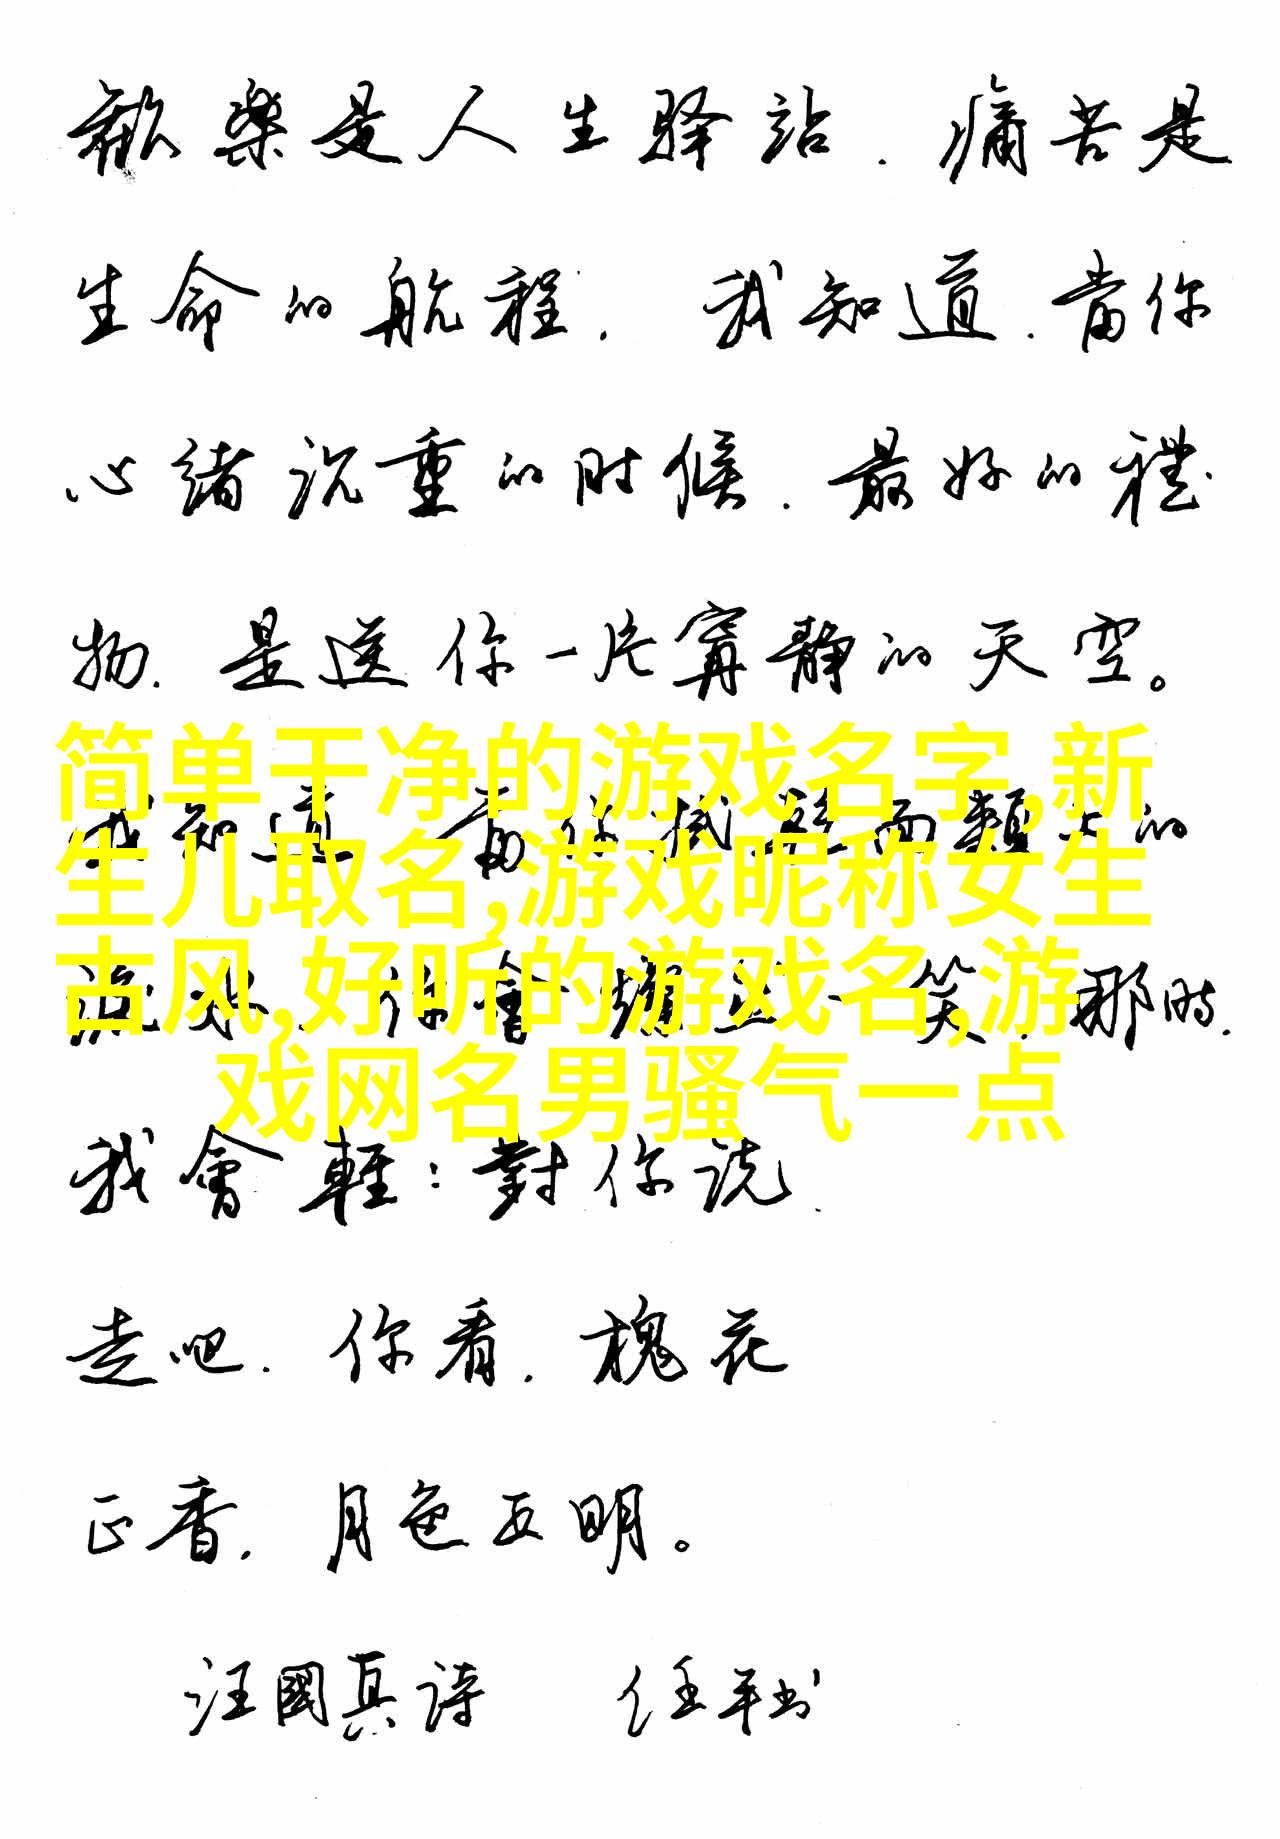 歡樂是人生驿站.痛苦是
生命的航程.我知道.當你
心緒沉重的时候.最好的禮
物.是送你一片寧静的天空。
简单干净的游戏名字,新
我知道 當你 面頰上的
生儿取名,游戏昵称女生
古风,好听的游戏名,游
你會 一笑.那時.
戏网名男骚气一点
我會輕:對你说.
走吧.你看.槐花
正香.月色正明。
汪國真诗 任平书